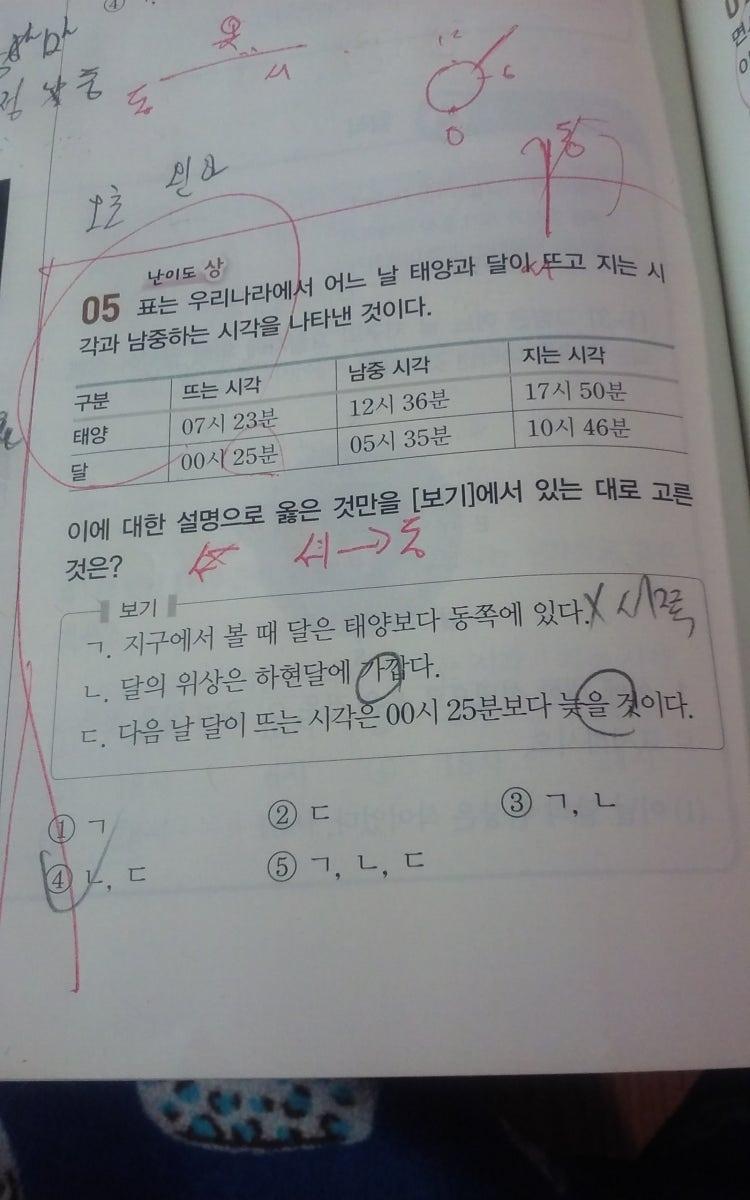 ④
동
시
12
6
0
동
난이도 상
05 표는 우리나라에서 어느 날 태양과 달이 뜨고 지는 시
각과 남중하는 시각을 나타낸 것이다.
구분 뜨는 시각 남중 시각 지는 시각
태양 07시 23분 12시 36분 17시 50분
달 00시 25분 05시 35분 10시 46분
이에 대한 설명으로 옳은 것만을 [보기]에서 있는 대로 고른
것은?
서 → 동
보기
ㄱ. 지구에서 볼 때 달은 태양보다 동쪽에 있다. X 서쪽
ㄴ. 달의 위상은 하현달에 가깝다.
ㄷ. 다음 날 달이 뜨는 시각은 00시 25분보다 늦을 것이다.
① ㄱ ② ㄷ ③ ㄱ, ㄴ
④ ㄴ, ㄷ ⑤ ㄱ, ㄴ, ㄷ